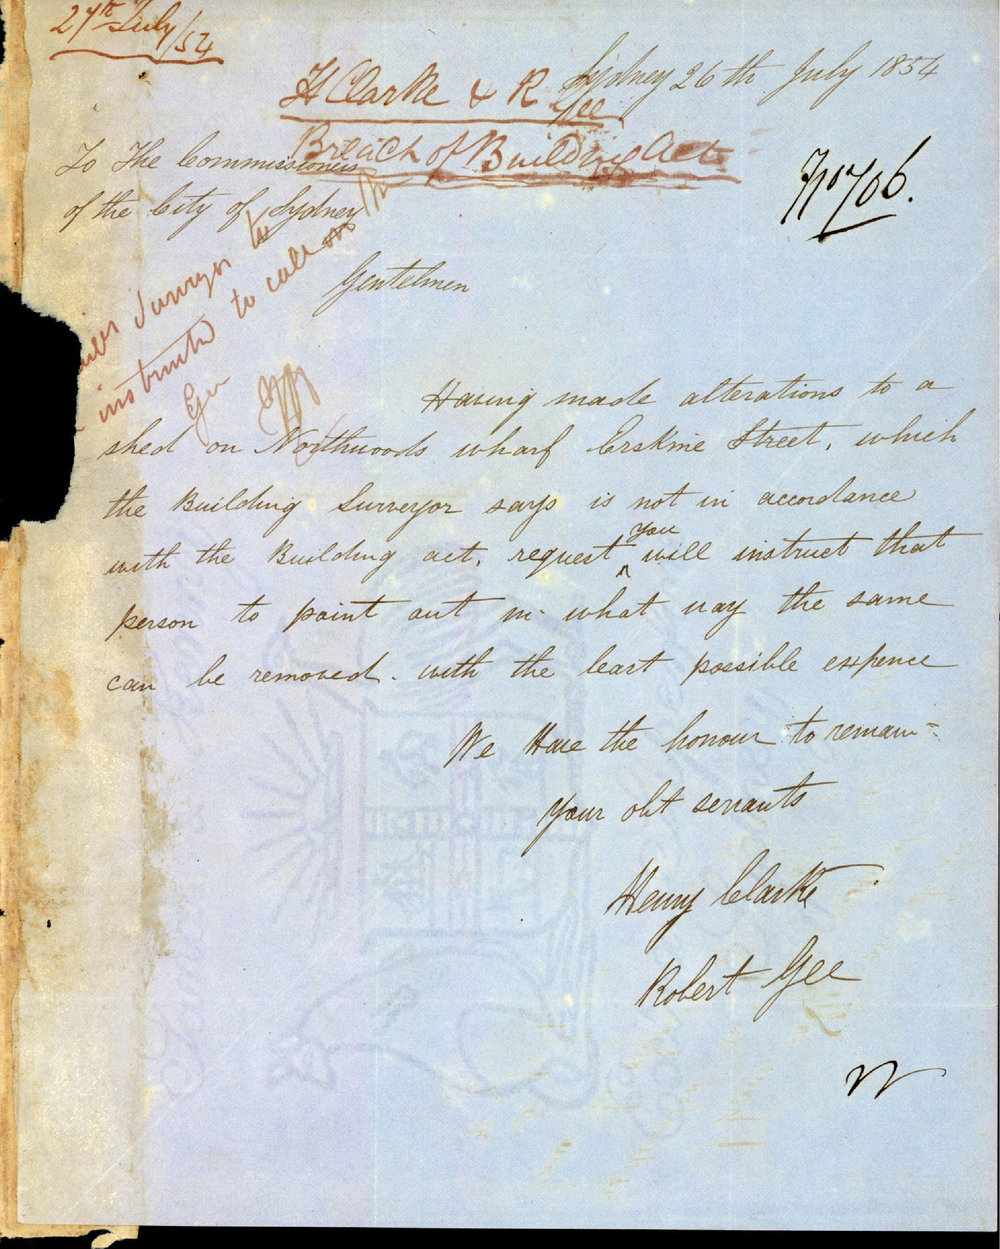 27th July/54
H Clarke & R Gee
Breach of Building Act
Sydney 26th July 1854
No 706.
To The Commissioners
of the City of Sydney
Surveyor to
instructed to call on
Gee
Gentelmen
Having made alterations to a
shed on Northwoods wharf Erskine Street, which
the Building Surveyor says is not in accordance
with the Building act, request you will instruct that
person to point out in what way the same
can be removed. with the least possible expence
We Have the honour to remain
Your obt servants
Henry Clarke
Robert Gee